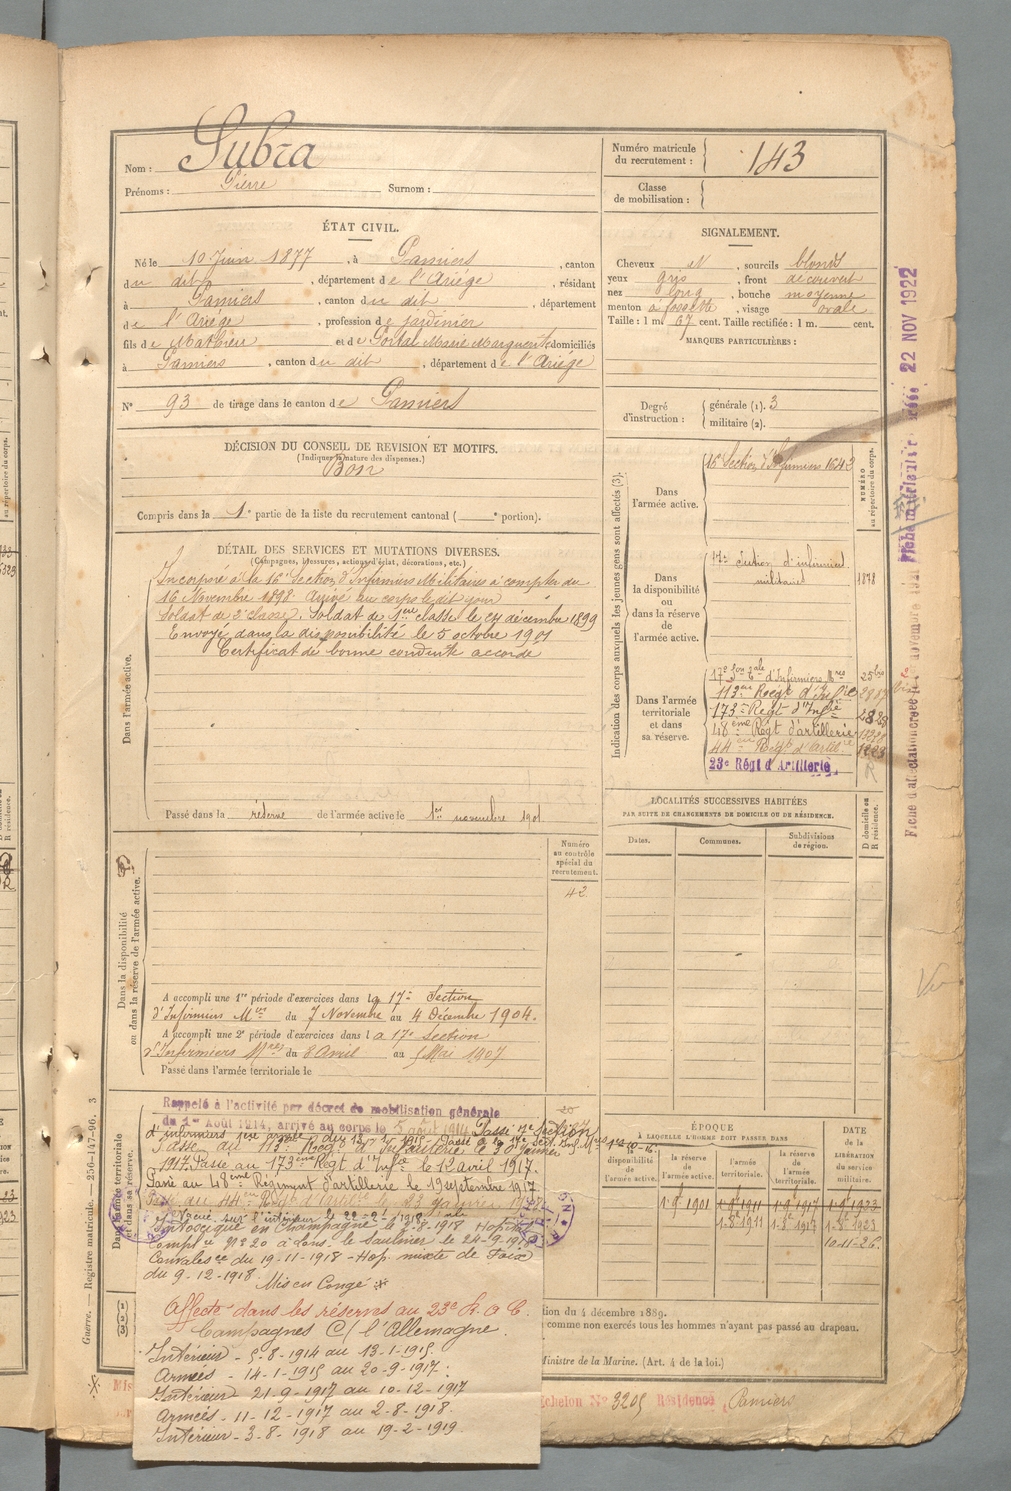 Nom : Subra
Prénoms : Pierre Surnom :
Numéro matricule du recrutement : 143
Classe de mobilisation :
ÉTAT CIVIL.
Né le 10 Juin 1877, à Pamiers, canton
du dit, département de l'Ariége, résidant
à Pamiers, canton du dit, département
de l'Ariége, profession de jardinier
fils de Mathieu et de Portal Marie Marguerite, domiciliés
à Pamiers, canton du dit, département de l'Ariége
N° 93 de tirage dans le canton de Pamiers
SIGNALEMENT.
Cheveux et, sourcils blonds
yeux gris, front découvert
nez long, bouche moyenne
menton à fossette, visage ovale
Taille : 1 m. 67 cent. Taille rectifiée : 1 m. cent.
MARQUES PARTICULIÈRES :
Degré d'instruction : générale (1). 3
militaire (2).
DÉCISION DU CONSEIL DE REVISION ET MOTIFS.
(Indiquer la nature des dispenses.)
Bon
Compris dans la 1e partie de la liste du recrutement cantonal ( e portion).
DÉTAIL DES SERVICES ET MUTATIONS DIVERSES.
(Campagnes, blessures, actions d'éclat, décorations, etc.)
Dans l'armée active.
Incorporé à la 16e Section d'Infirmiers Militaires à compter du
16 Novembre 1898. Arrivé au corps le dit jour
Soldat de 2e classe. Soldat de 1ere classe le 27 décembre 1899
Envoyé dans la disponibilité le 5 octobre 1901
Certificat de bonne conduite accordé
Passé dans la réserve de l'armée active le 1er novembre 1901
Indication des corps auxquels les jeunes gens sont affectés (3).
NUMÉRO au répertoire du corps.
Dans l'armée active.
16e Section d'Infirmiers 1642
Dans la disponibilité ou dans la réserve de l'armée active.
17e Section d'infirmiers
militaires 1878
Dans l'armée territoriale et dans sa réserve.
17e Son Tale d'Infirmiers Mres 25 bis
113me Régt d'Infie
173e Régt d'Infie
48ème Régt d'artillerie
44me Régt d'Artie
23e Régt d'Artillerie R
LOCALITÉS SUCCESSIVES HABITÉES
PAR SUITE DE CHANGEMENTS DE DOMICILE OU DE RÉSIDENCE.
Dates. Communes. Subdivisions de région.
D domicile ou R résidence.
Dans la disponibilité ou dans la réserve de l'armée active.
Numéro au contrôle spécial du recrutement.
42
A accompli une 1re période d'exercices dans la 17e Section
d'Infirmiers Mres du 7 Novembre au 4 Décembre 1904.
A accompli une 2e période d'exercices dans la 17e Section
d'Infirmiers Mres du 8 Avril au 5 Mai 1907
Passé dans l'armée territoriale le
Dans l'armée territoriale et dans sa réserve.
Rappelé à l'activité par décret de mobilisation générale
du 1er Août 1914, arrivé au corps le 5 août 1914 Passé 7e Section
1917. Passé au 173ème Régt d'Infie le 12 avril 1917.
Passé au 48eme Régiment d'artillerie le 19 septembre 1917
Passé au 44em Régt d'Artie le 23 Janvier
Evacué sur l'intérieur le
Intoxiqué en Champagne le 2-8-1918 Hopital
Complre N° 20 à Lons-le-Saulnier le 24-9-1918
Convalesce du 19-11-1918 - Hop. mixte de Foix
du 9-12-1918. Mis en Congé *
Affecté dans les réserves au 23e R. A. C.
Campagnes C/ l'Allemagne.
Intérieur - 5-8-1914 au 13-1-1915
Armées - 14-1-1915 au 20-9-1917.
Intérieur 21-9-1917 au 10-12-1917
Armées - 11-12-1917 au 2-8-1918.
Intérieur - 3-8-1918 au 19-2-1919
ÉPOQUE
À LAQUELLE L'HOMME DOIT PASSER DANS
la disponibilité de l'armée active.
la réserve de l'armée active.
l'armée territoriale.
la réserve de l'armée territoriale.
DATE de la LIBÉRATION du service militaire.
1-9-1901 1-9-1911 1-9-1917 1-9-1923
1-8-1911 1-8-1917 1-8-1923
10-11-26.
tion du 4 décembre 1889.
comme non exercés tous les hommes n'ayant pas passé au drapeau.
Ministre de la Marine. (Art. 4 de la loi.)
Echelon N° 3205 Résidence Pamiers
Guerre. — Registre matricule. — 256-147-96. 3
22 NOV 1922